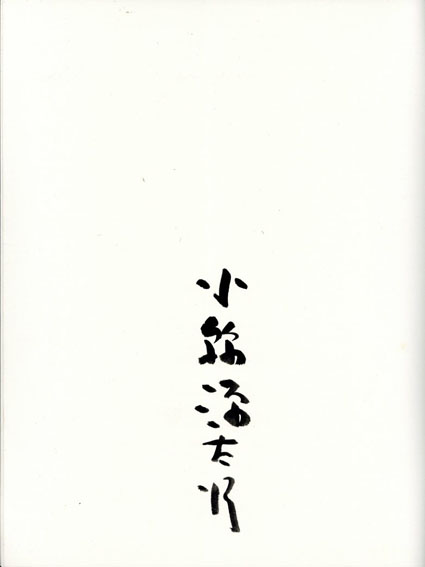 小絲源太郎